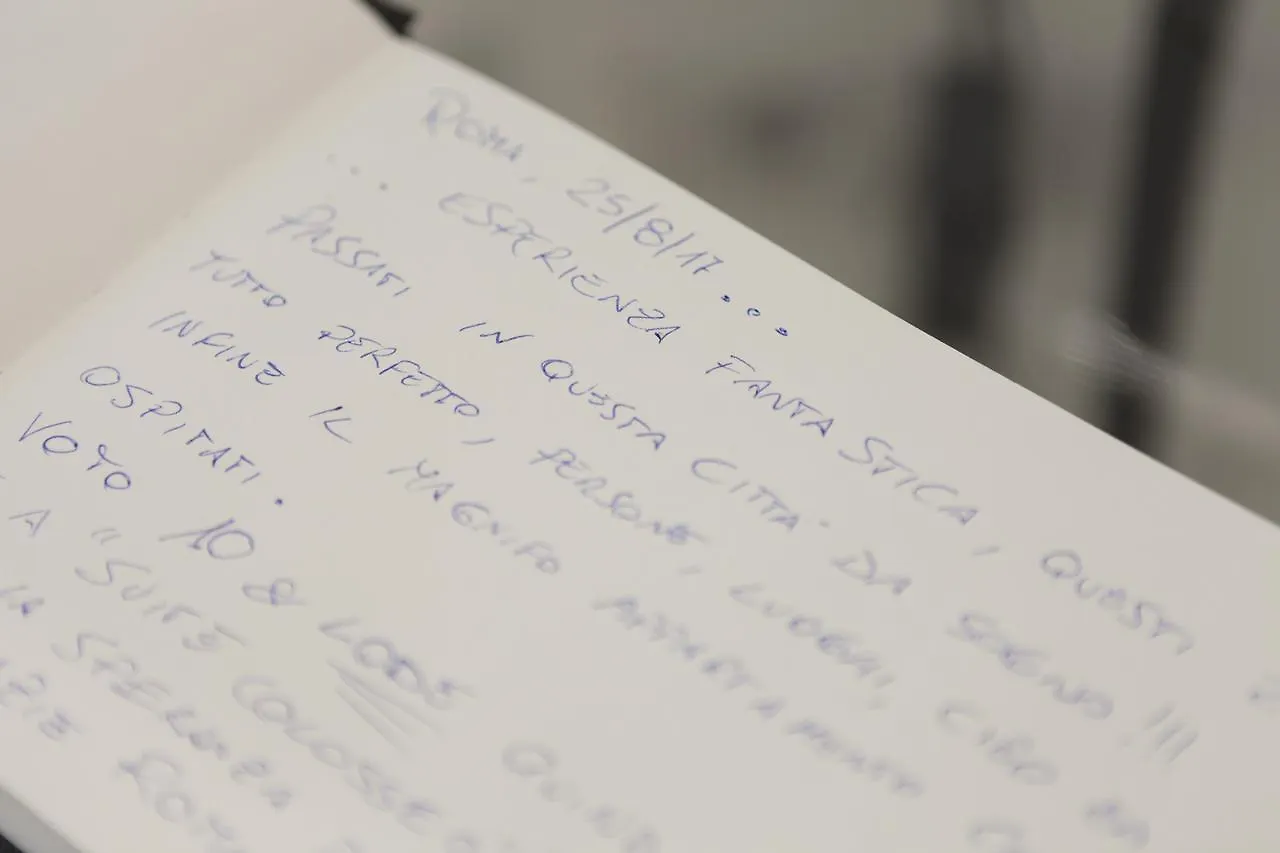 ROMA, 25/8/17...
... ESPERIENZA FANTASTICA, QUESTI
PASSATI IN QUESTA CITTA' DA SOGNO!!!
TUTTO PERFETTO, PERSONE, LUOGHI, CIBO
INFINE IL MAGNIFO APPARTAMENTO
OSPITATI.
VOTO 10 & LODE
A "SUITE COLOSSEO
LA SPERANZA